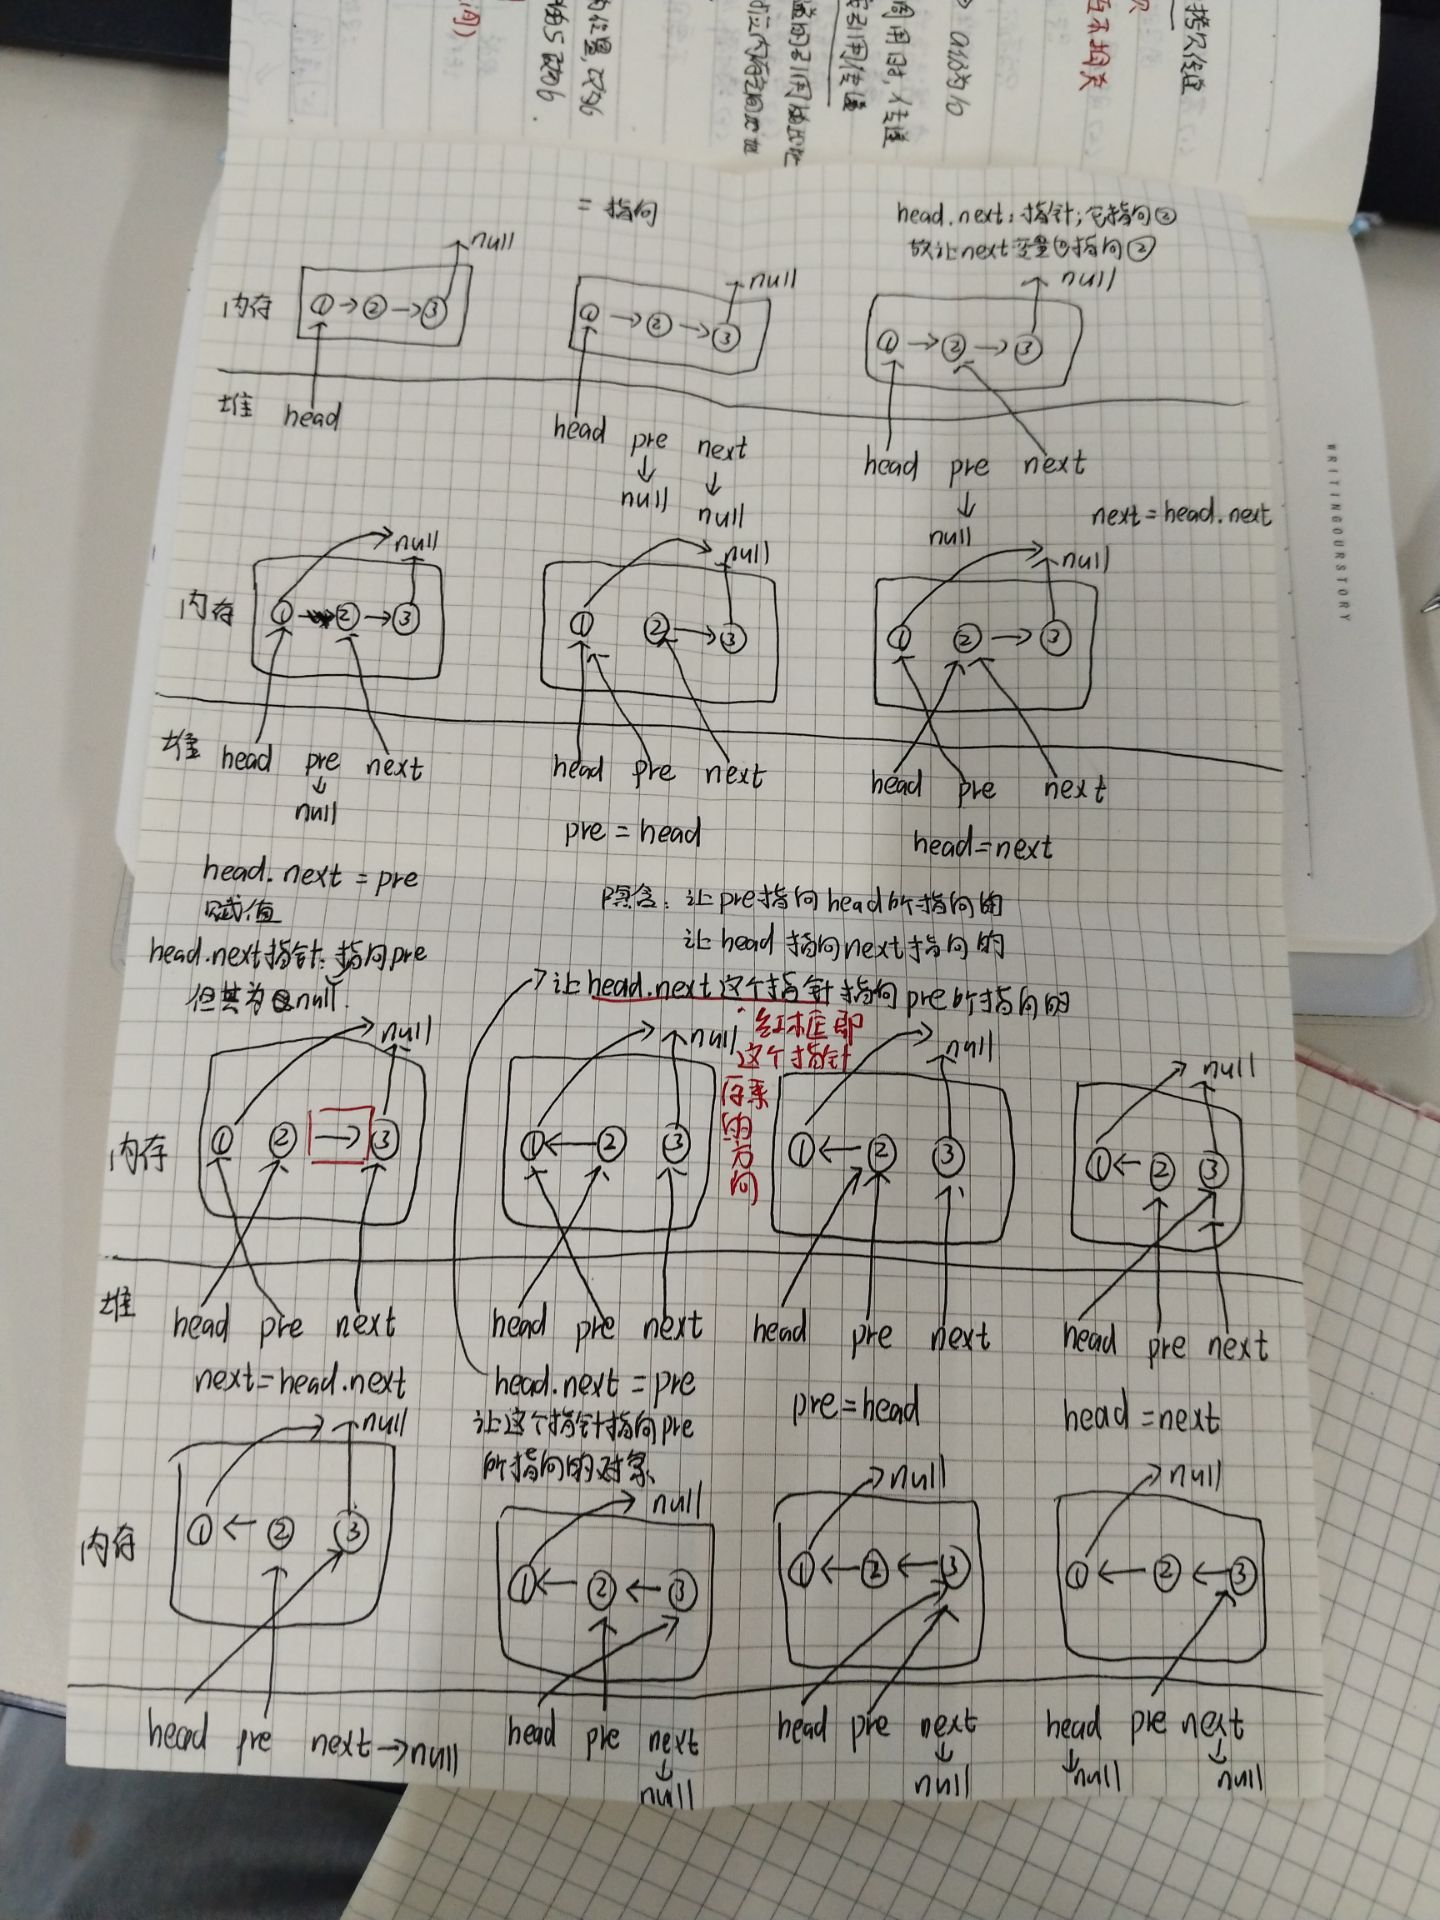 拷贝传递
互不相关
周用时,传递
引用传递
= 指向
head.next:指针;它指向②
故让next变量也指向②
内存 ①→②→③ null
①→②→③ null
①→②→③ null
堆 head
head pre next
null null
head pre next
null
next=head.next
内存 ① ②→③ null
① ②→③ null
① ②→③ null
堆 head pre next
null
head pre next
head pre next
pre=head
head=next
head.next=pre
赋值
head.next指针:指向pre
但其为null.
隐含:让pre指向head所指向的
让head指向next指向的
→让head.next这个指针指向pre所指向的
红框即
这个指针
原来
的方
向
内存 ① ②→③ null
①←② ③ null
①←② ③ null
①←② ③ null
堆 head pre next
head pre next
head pre next
head pre next
next=head.next
head.next=pre
pre=head
head=next
让这个指针指向pre
所指向的对象
内存 ①←② ③ null
①←②←③ null
①←②←③ null
①←②←③ null
head pre next→null
head pre next
null
head pre next
null
head pre next
null null
WRITINGOURSTORY